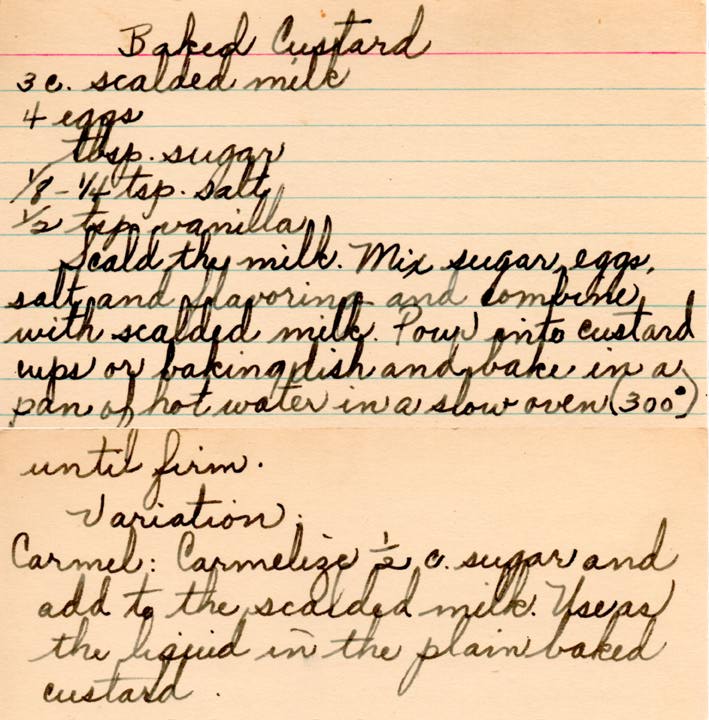 Baked Custard
3 c. scalded milk
4 eggs
tbsp. sugar
1/8 - 1/4 tsp. salt
1/2 tsp vanilla
Scald the milk. Mix sugar, eggs,
salt, and flavoring and combine
with scalded milk. Pour into custard
cups or baking dish and bake in a
pan of hot water in a slow oven (300°)
until firm.
Variation:
Carmel: Carmelize 1/2 c. sugar and
add to the scalded milk. Use as
the liquid in the plain baked
custard.